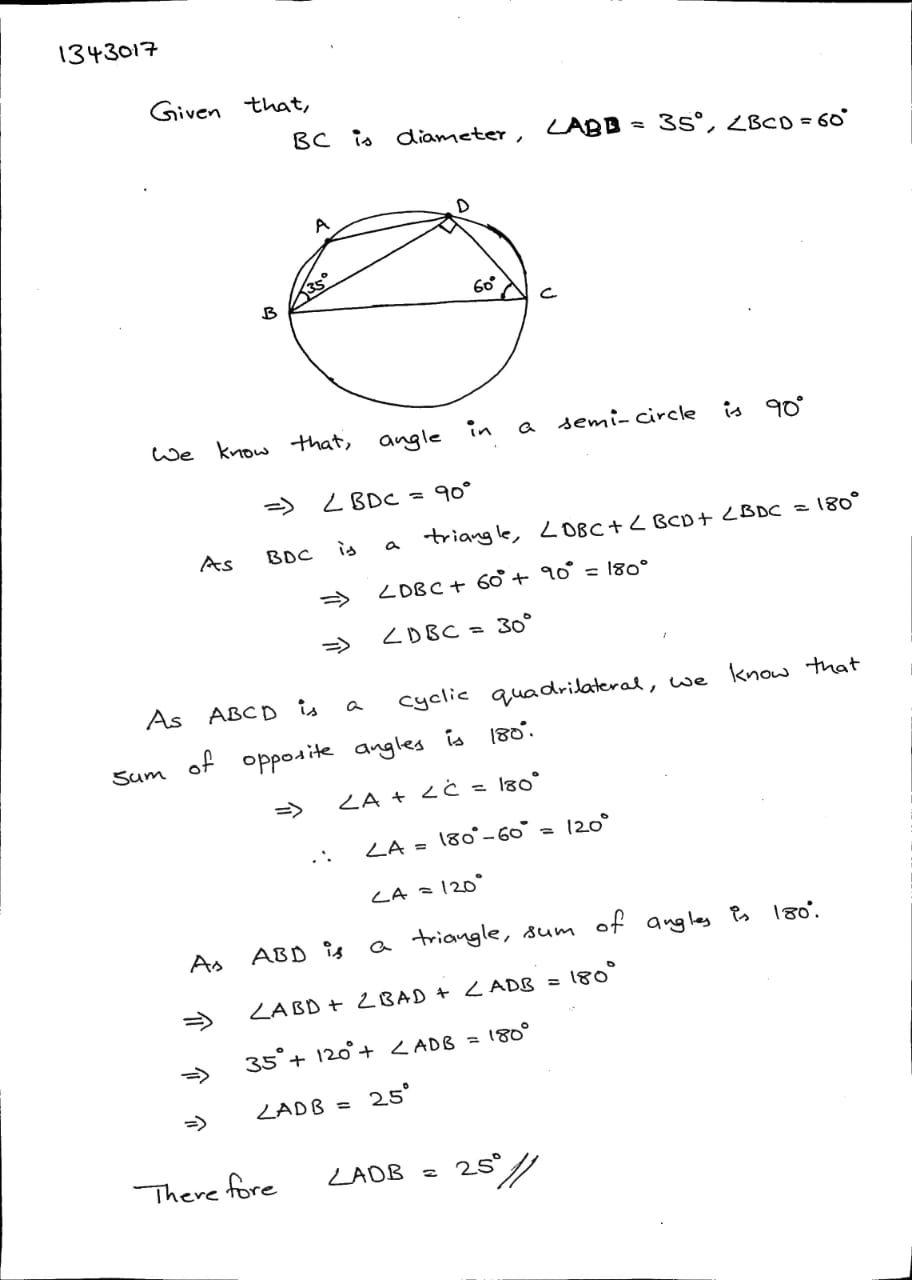 1343017
Given that,
BC is diameter, ∠ABD = 35°, ∠BCD = 60°
A
D
35°
60°
B
C
We know that, angle in a semi-circle is 90°
⇒ ∠BDC = 90°
As BDC is a triangle, ∠DBC + ∠BCD + ∠BDC = 180°
⇒ ∠DBC + 60° + 90° = 180°
⇒ ∠DBC = 30°
As ABCD is a cyclic quadrilateral, we know that
sum of opposite angles is 180°.
⇒ ∠A + ∠C = 180°
∴ ∠A = 180° - 60° = 120°
∠A = 120°
As ABD is a triangle, sum of angles is 180°.
⇒ ∠ABD + ∠BAD + ∠ADB = 180°
⇒ 35° + 120° + ∠ADB = 180°
⇒ ∠ADB = 25°
Therefore ∠ADB = 25° //